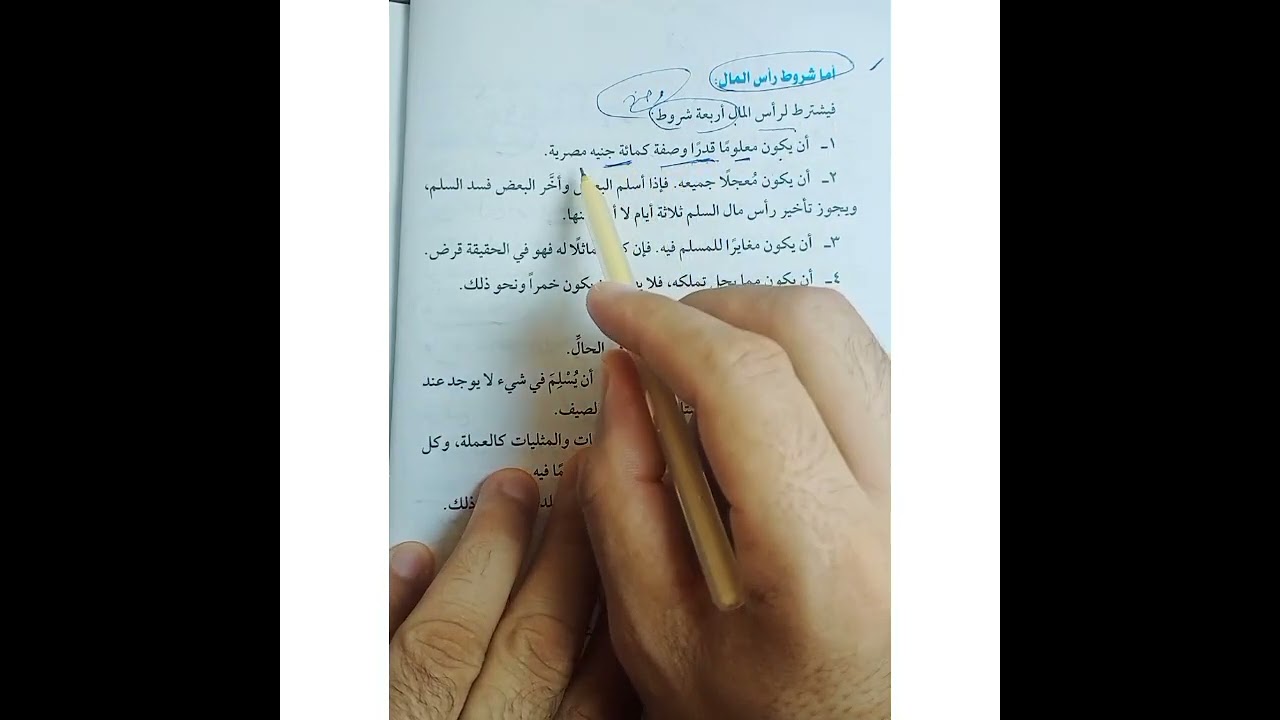 أما شروط رأس المال:
فيشترط لرأس المال أربعة شروط:
١ـ أن يكون معلومًا قدرًا وصفة كمائة جنيه مصرية.
٢ـ أن يكون مُعجلًا جميعه. فإذا أسلم وأخَّر البعض فسد السلم،
ويجوز تأخير رأس مال السلم ثلاثة أيام لا
٣ـ أن يكون مغايرًا للمسلم فيه. فإن له فهو في الحقيقة قرض.
٤ـ أن يكون مما يحل تملكه، فلا يكون خمراً ونحو ذلك.
الحالِّ.
أن يُسْلِمَ في شيء لا يوجد عند
والمثليات كالعملة، وكل
فيه
ذلك.